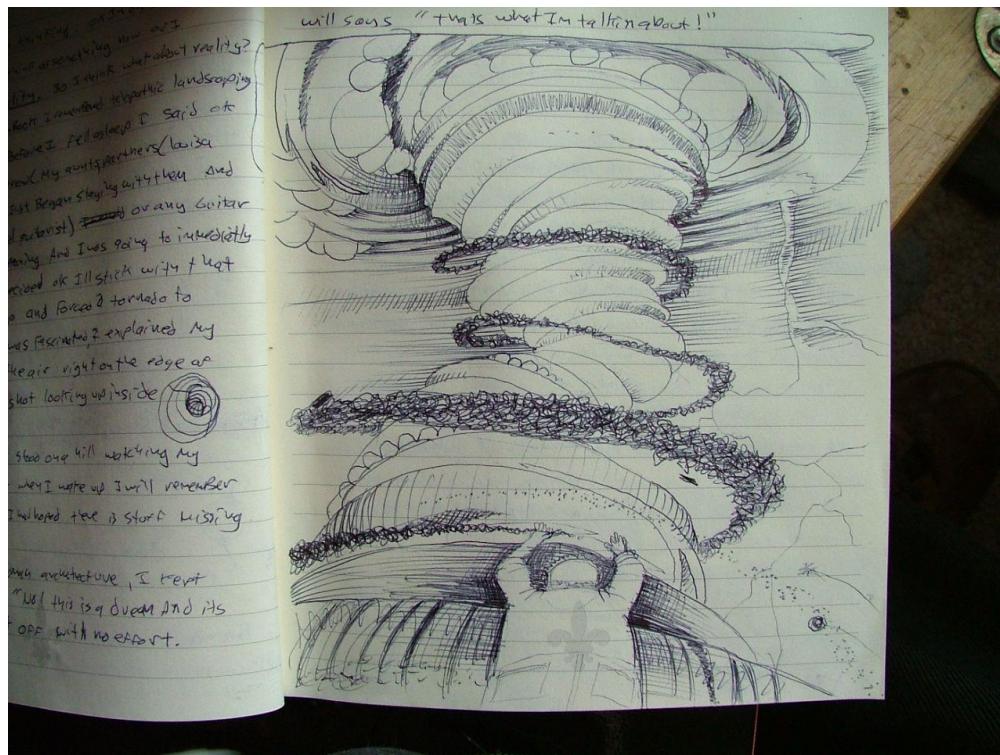 thinking
something now or I
lity. So I think what about reality?
I remembered telepathic landscaping
Before I fell asleep I said ok
My aunts partners (louisa
Just Began staying with them And
guitarist) or any Guitar
And I was going to immediatly
ok Ill stick with that
and Forced a tornado to
was Fascinated, I explained My
air right on the edge of
shot looking up inside
stood on a hill watching My
when I wake up I will remember
I had hoped there is stuff Missing
architecture, I kept
"No! this is a dream And its
OFF with no effort.
will says "thats what Im talking about!"